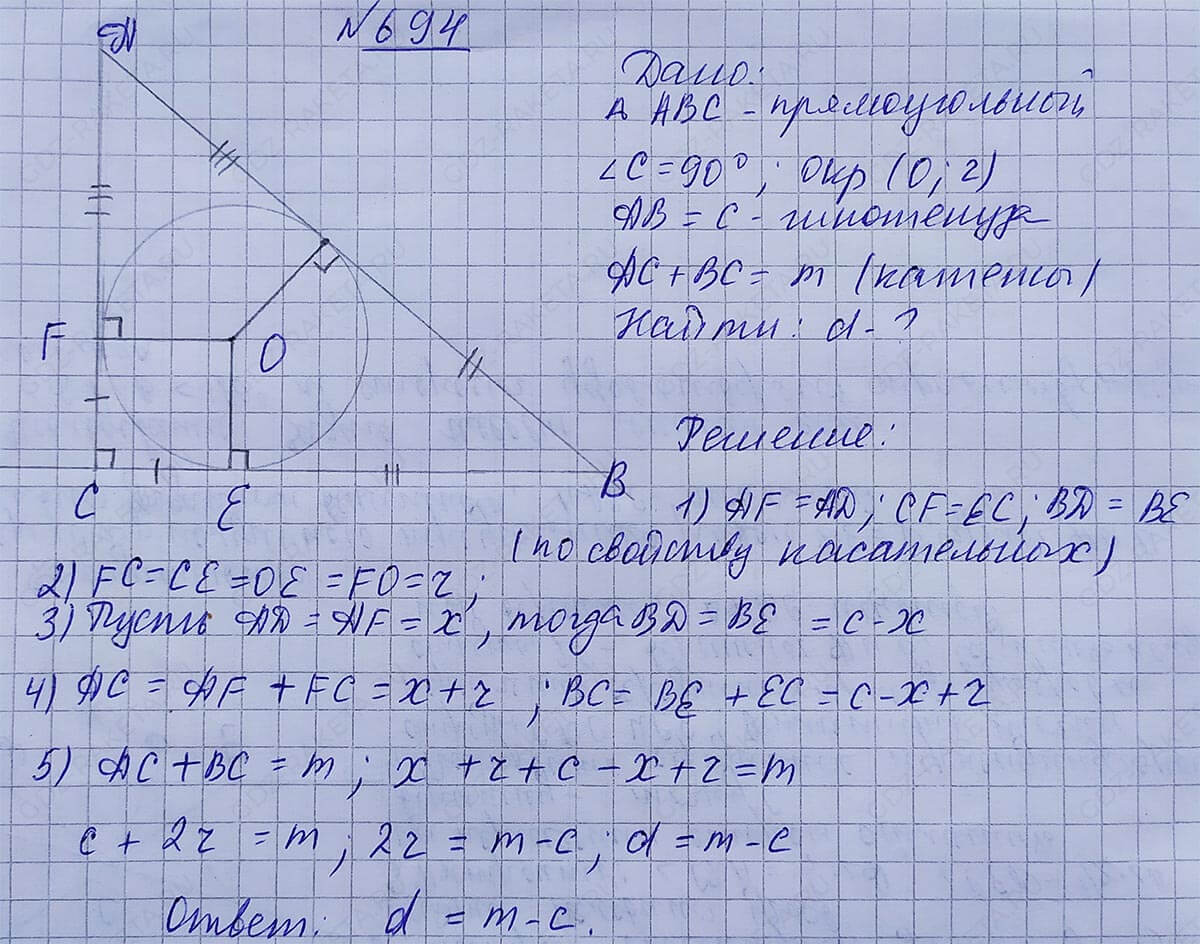 №694
A
Дано:
Δ ABC - прямоугольный
∠C = 90°; Окр (O; r)
AB = c - гипотенуза
AC + BC = m (катеты)
Найти: d - ?
F
O
C
E
B
Решение:
1) AF = AD; CF = EC; BD = BE
(по свойству касательных)
2) FC = CE = OE = FO = r;
3) Пусть AD = AF = x, тогда BD = BE = c - x
4) AC = AF + FC = x + r; BC = BE + EC = c - x + r
5) AC + BC = m; x + r + c - x + r = m
c + 2r = m; 2r = m - c; d = m - c
Ответ: d = m - c.